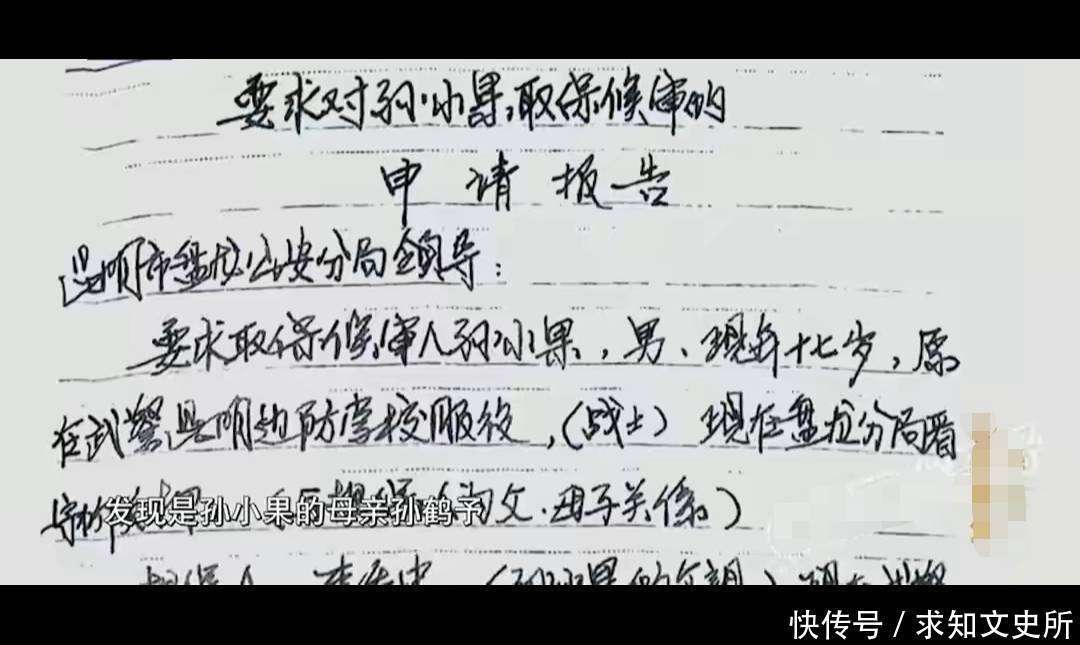 要求对孙小果取保候审的
申请报告
昆明市盘龙公安分局领导:
要求取保候审人孙小果,男、现年十七岁,原
在武警昆明边防学校服役,(战士)现在盘龙分局看
守所 父.母子关系)
发现是孙小果的母亲孙鹤予
(孙小果的父亲)现在
快传号 / 求知文史所